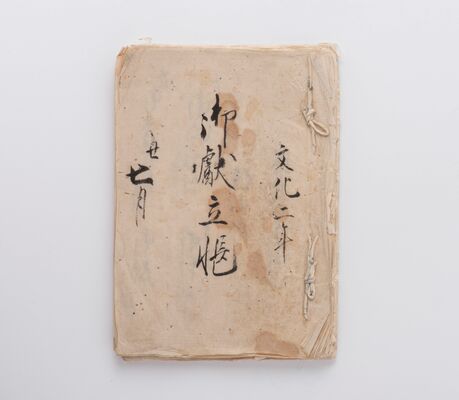 文化二年
御獻立帳
丑七月